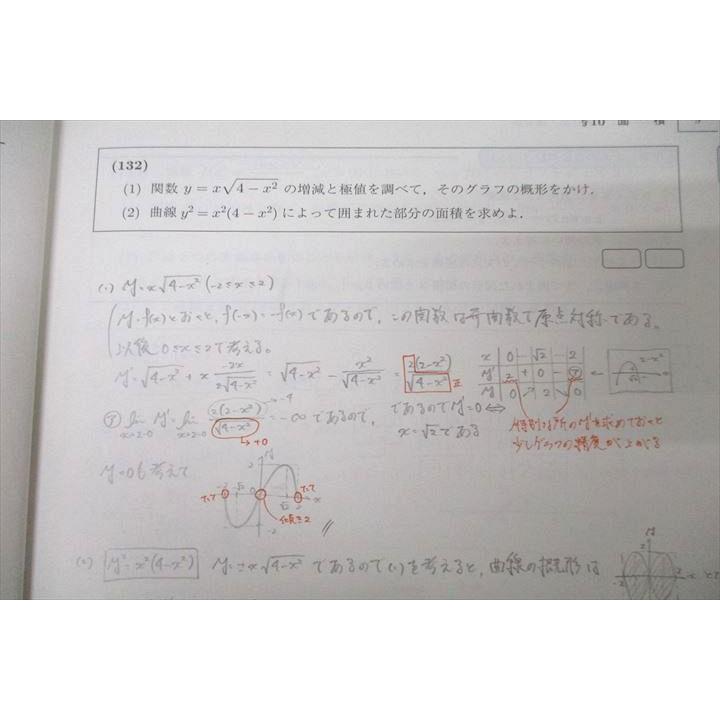 §10 面 積
(132)
(1) 関数 y = x√(4 − x²) の増減と極値を調べて，そのグラフの概形をかけ．
(2) 曲線 y² = x²(4 − x²) によって囲まれた部分の面積を求めよ．
(1) y = x√(4−x²) (−2≤x≤2)
y=f(x)とおくと、f(−x)=−f(x)であるので、この関数は奇関数で原点対称である。
以後 0≤x≤2で考える。
y' = √(4−x²) + x (−2x)/(2√(4−x²)) = √(4−x²) − x²/√(4−x²) = 2(2−x²)/√(4−x²) 正
x 0 … √2 … 2
y' 2 + 0 − ㋐
y 0 ↗ 2 ↘ 0
2−x²
√2
㋐ lim x→2−0 y' = lim x→2−0 2(2−x²)/√(4−x²) = −∞ であるので、
−4
→+0
であるので y'=0 ⇔
x=√2である
特別な所のy'も求めておくと
少しグラフの精度が上がる
y'=0も考えて
y
2
たて −2 −√2 0 √2 2 x たて
傾き2
−2
(2) y²=x²(4−x²) y=±x√(4−x²) であるので(1)を考えると、曲線の概形は
y
2
−2 2 x